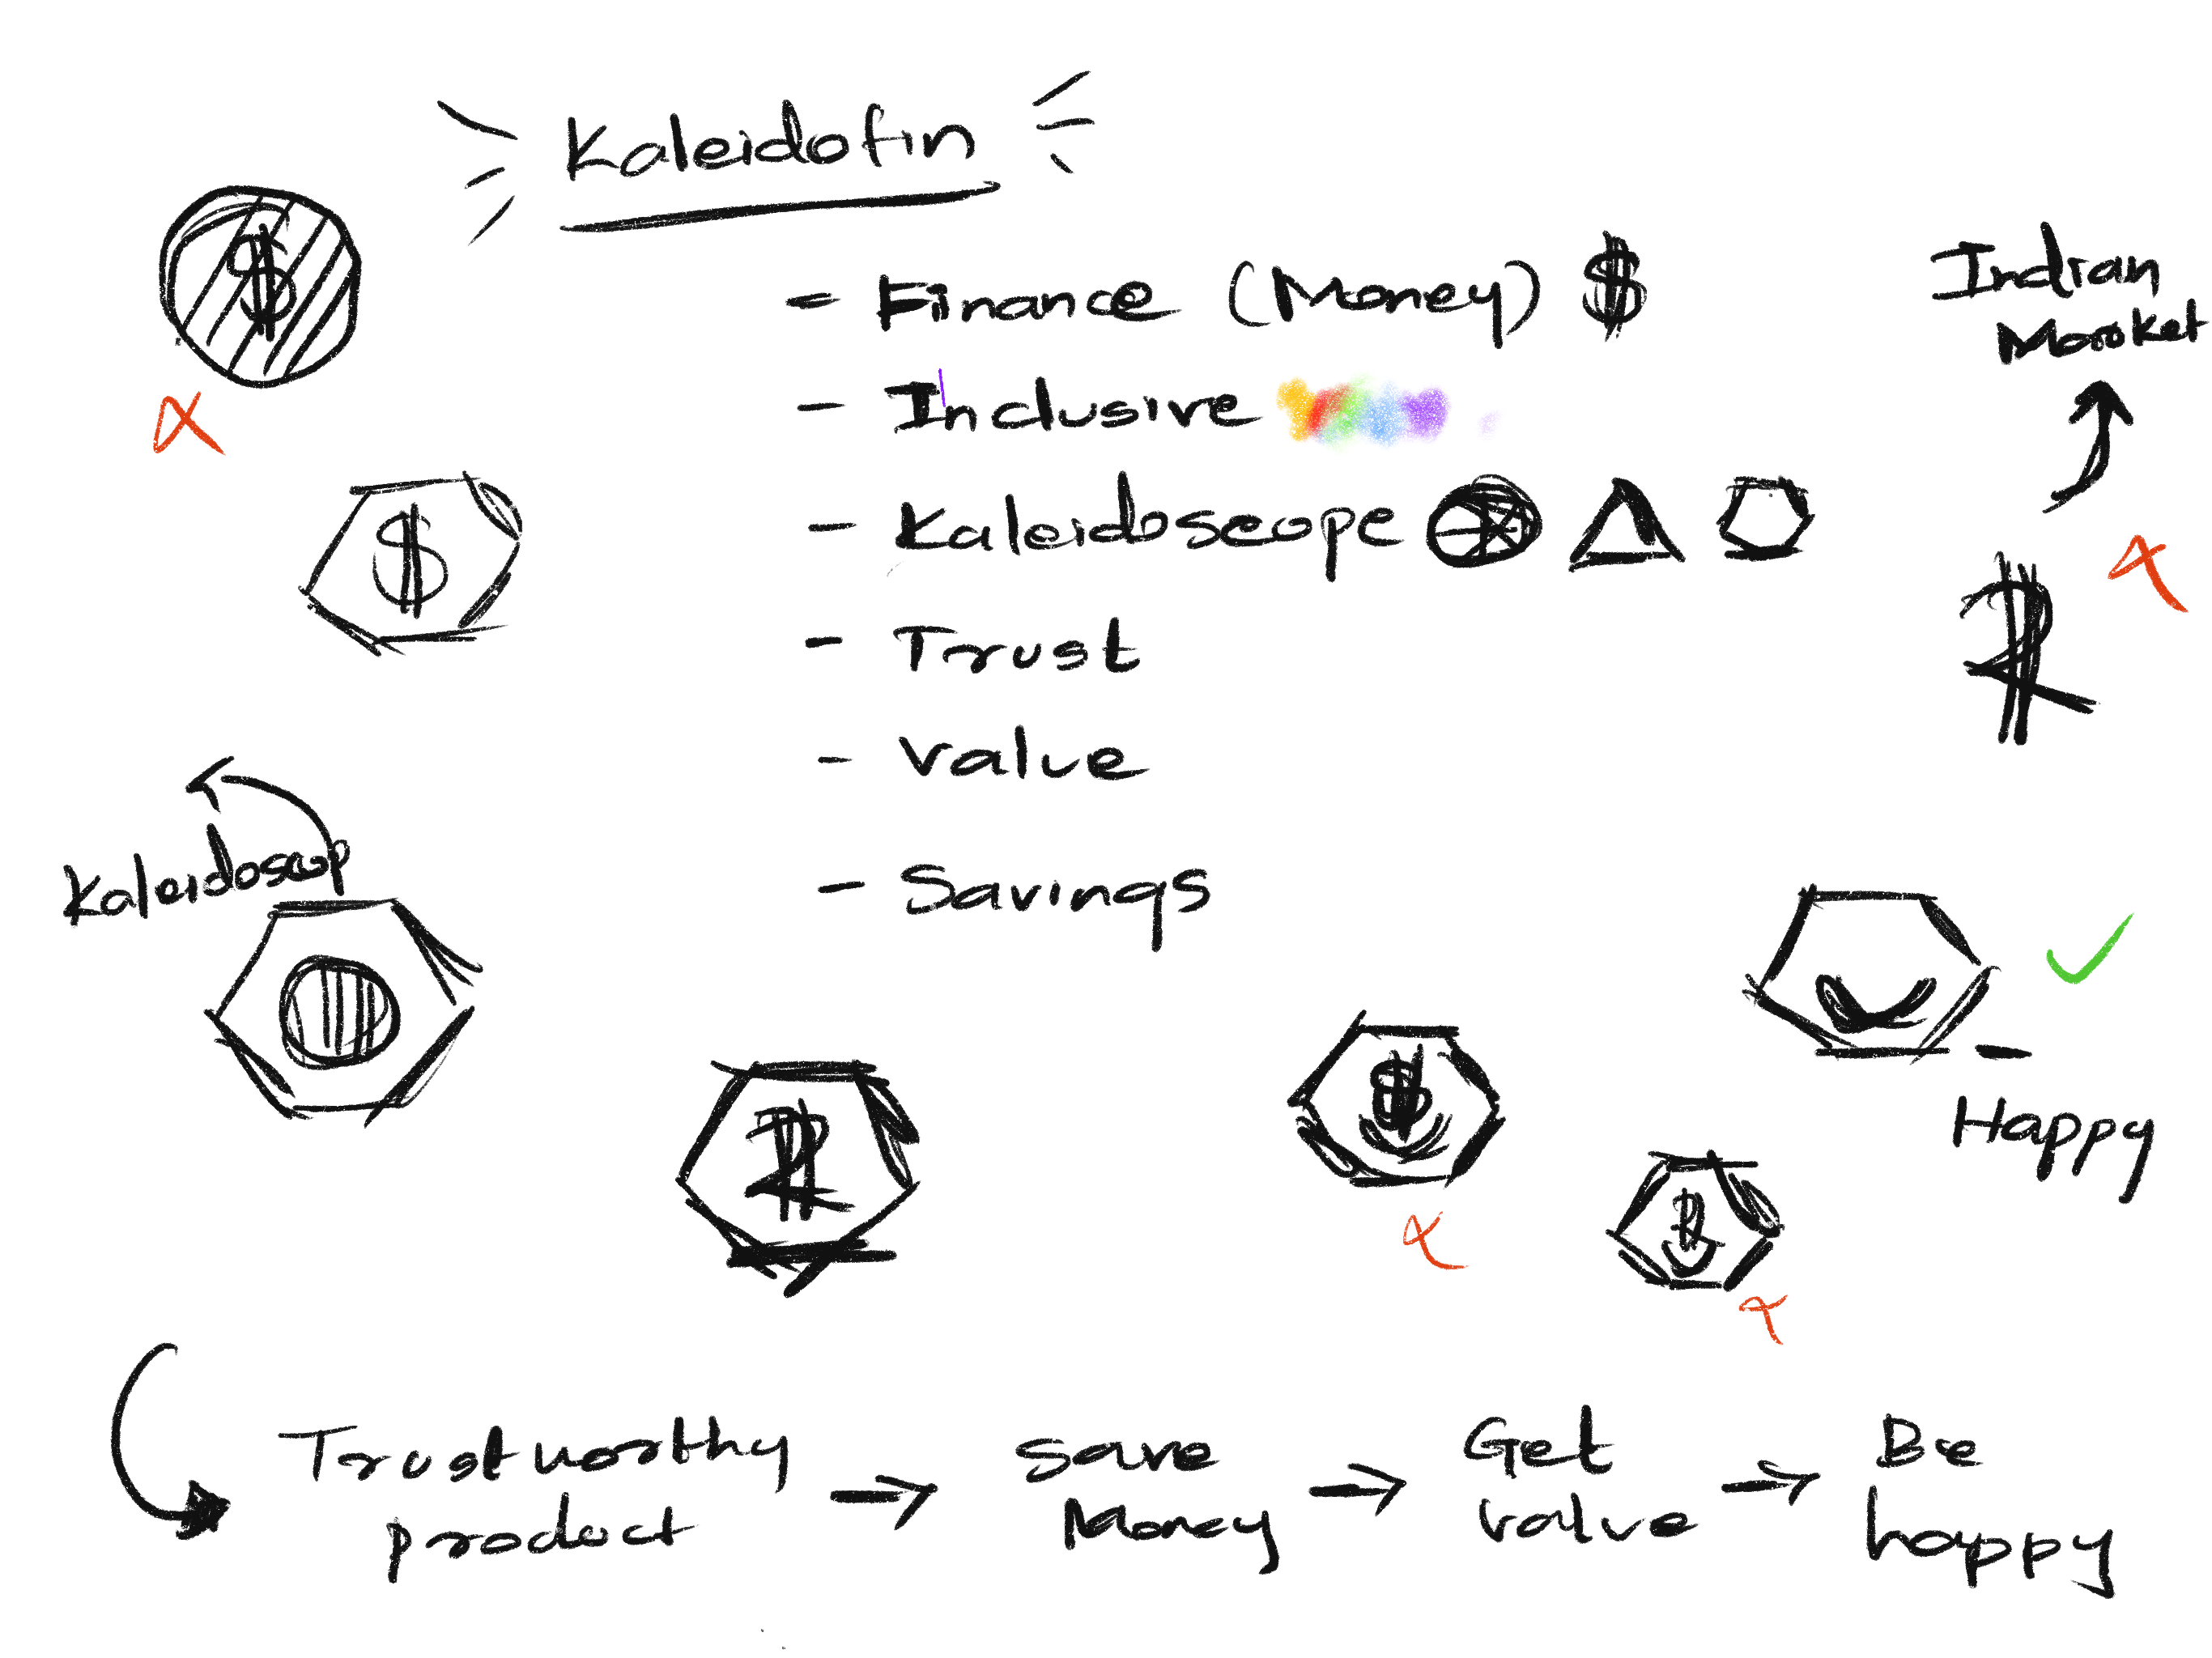 Kaleidofin
- Finance (Money) $
- Inclusive
- Kaleidoscope
- Trust
- Value
- Savings
Indian
Market
$
$
Kaleidoscop
$
- Happy
Trustworthy
product
→ Save
Money
→ Get
value
→ Be
happy